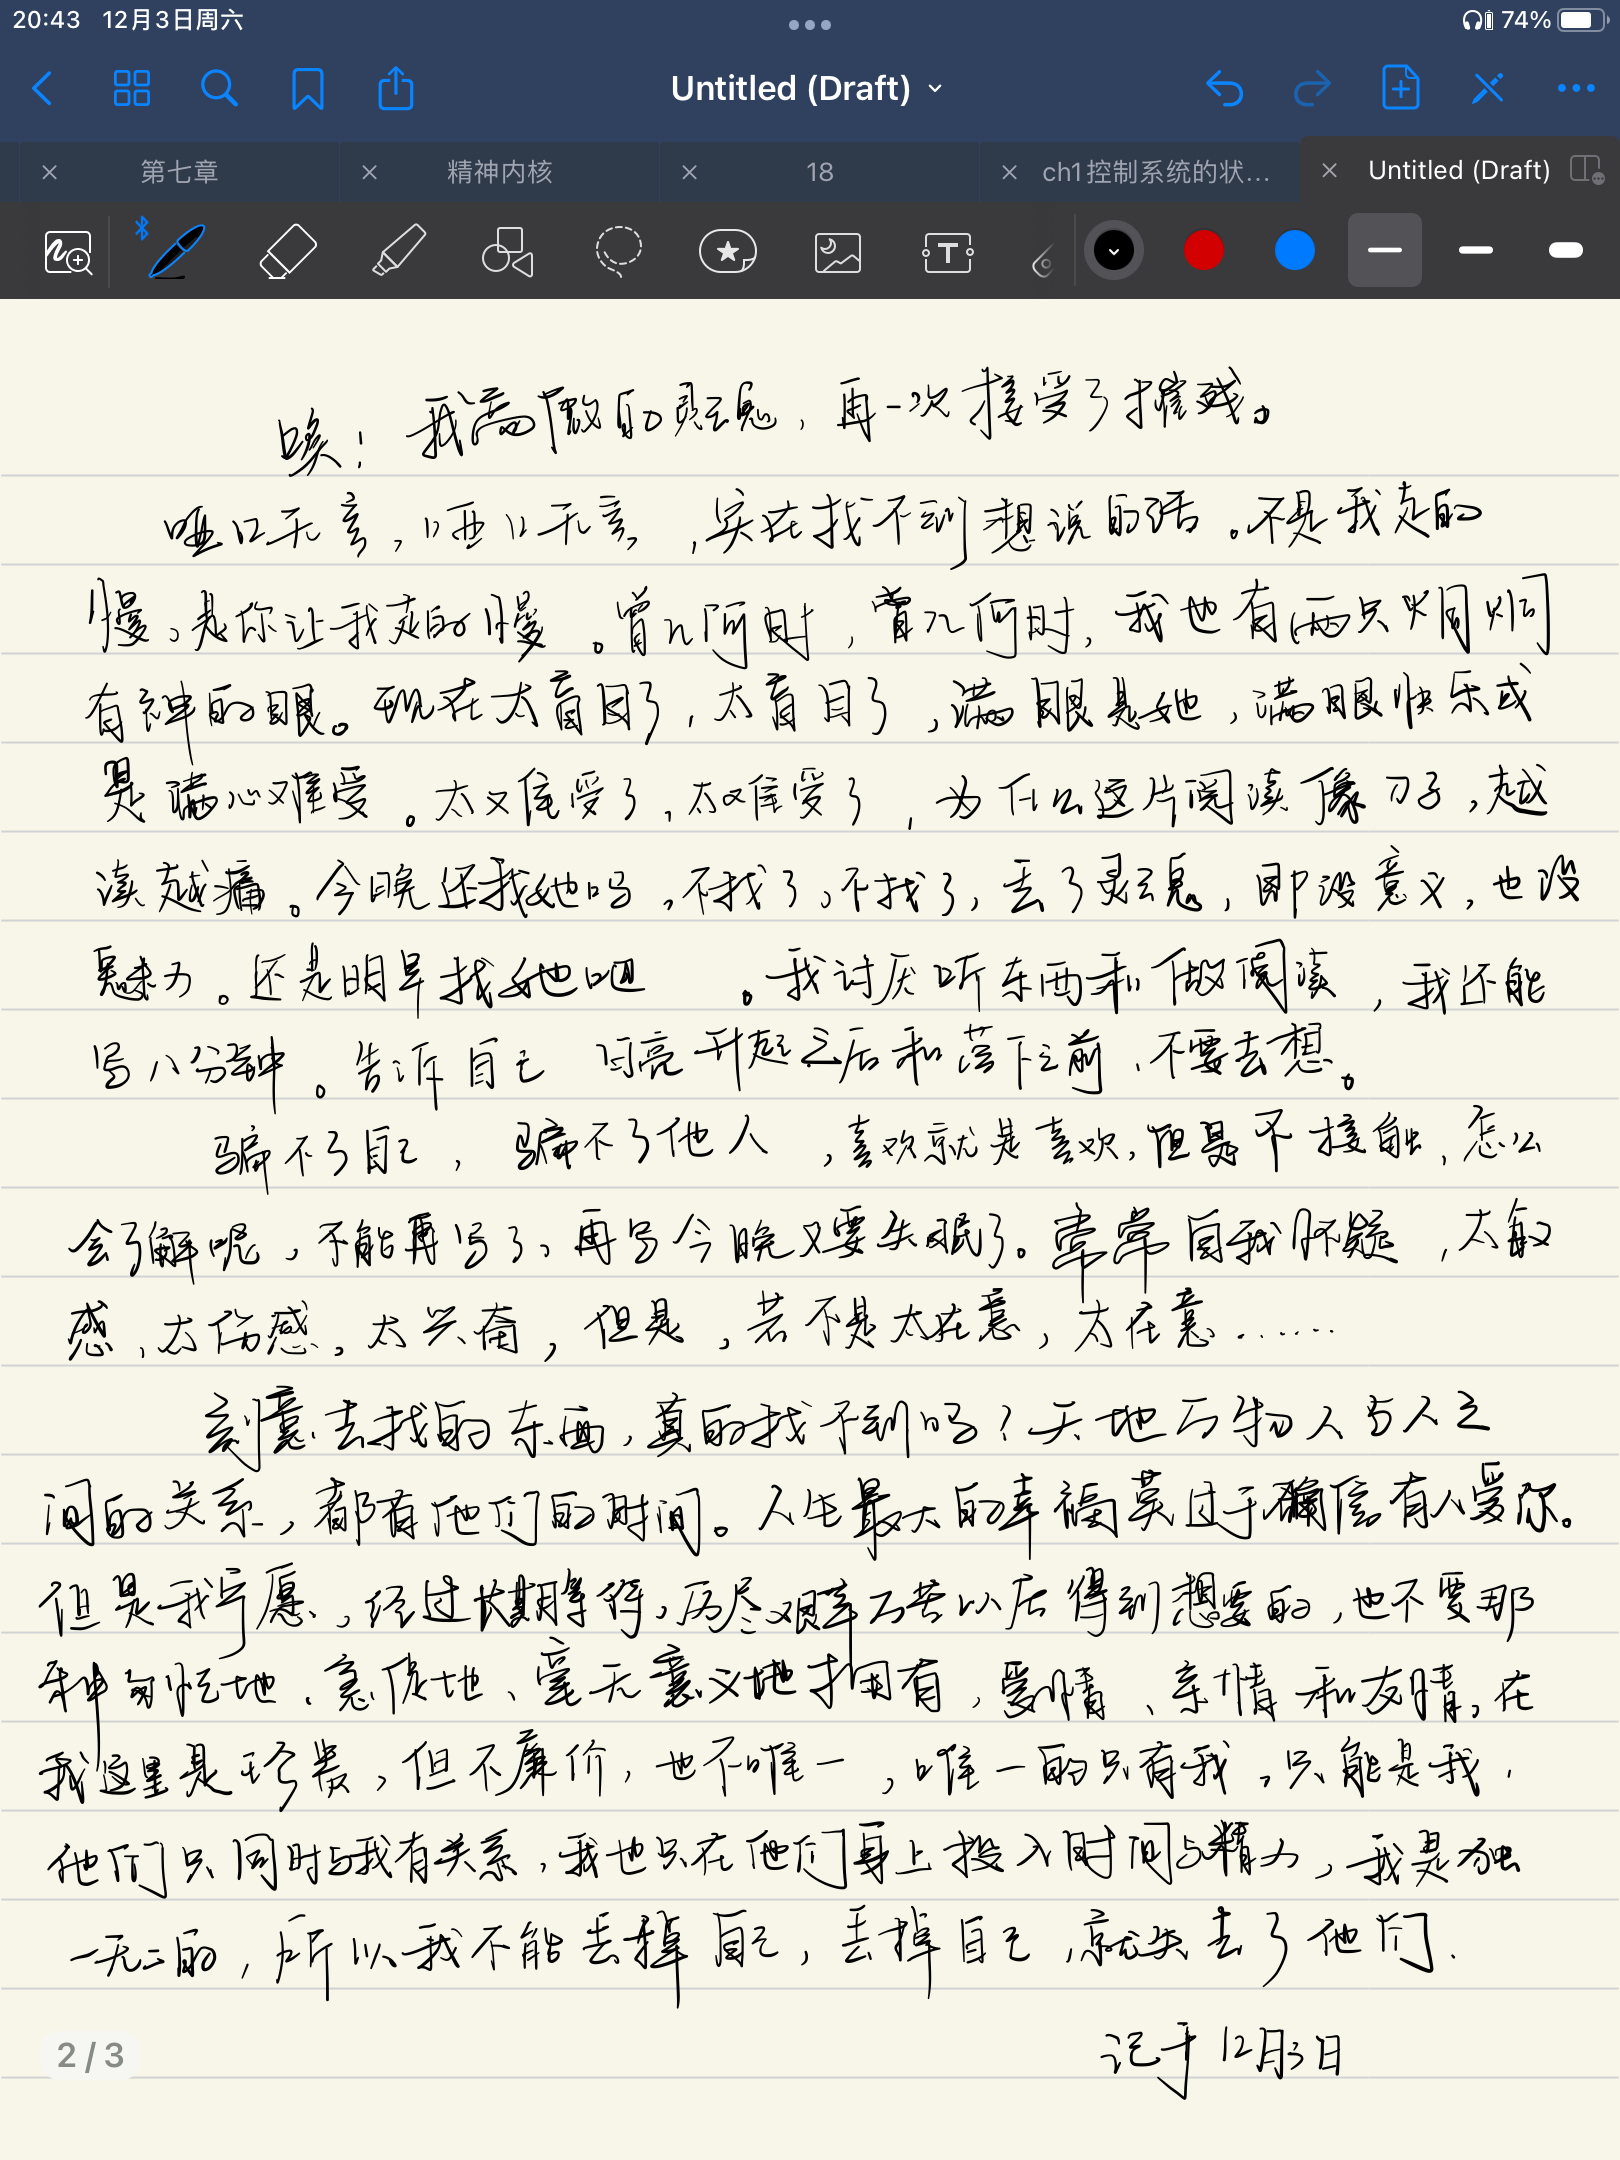 20:43 12月3日周六
74%
Untitled (Draft)
第七章
精神内核
18
ch1控制系统的状…
Untitled (Draft)
唉！我高傲的灵魂，再一次接受了摧残。
哑口无言，哑口无言，实在找不到想说的话。不是我走的
慢、是你让我走的慢。曾几何时，曾几何时，我也有两只炯炯
有神的眼。现在太盲目了，太盲目了，满眼是她，满眼快乐或
是满心难受。太难受了，太难受了，为什么这片阅读像刀子，越
读越痛。今晚还找她吗，不找了，不找了，丢了灵魂，即没意义，也没
魅力。还是明早找她吧。我讨厌听东西和做阅读，我还能
写八分钟。告诉自己 月亮升起之后和落下之前，不要去想。
骗不了自己，骗不了他人，喜欢就是喜欢，但是不接触，怎么
会了解呢、不能再写了、再写今晚又要失眠了。常常自我怀疑，太敏
感，太伤感，太兴奋，但是，若不是太在意，太在意……
刻意去找的东西，真的找不到吗？天地万物人与人之
间的关系，都有他们的时间。人生最大的幸福莫过于确信有人爱你。
但是我宁愿，经过长期等待，历尽艰辛万苦以后得到想要的，也不要那
种匆忙地、急促地、毫无意义地拥有，爱情、亲情和友情，在
我这里是珍贵，但不廉价，也不唯一，唯一的只有我，只能是我，
他们只同时与我有关系，我也只在他们身上投入时间与精力，我是独
一无二的，所以我不能丢掉自己，丢掉自己，就失去了他们.
记于12月3日
2/3